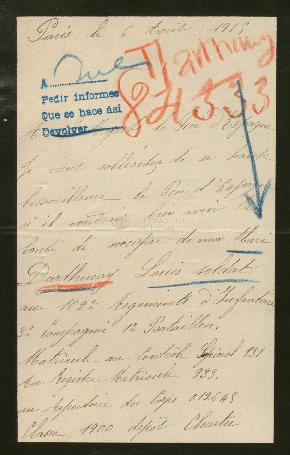 Paris le 6 Août 1915
A
Pedir informes
Que se hace ási
Devolver
84533
le Roi d'Espagne
Je viens solliciter de sa
bienveillance le Roi d'Espagne
si il voudrait bien avoir la
bonté de de mon Mari
Barthenay Louis soldat
au 102e Régiments d'Infanterie
3e Compagnie 1e Bataillon.
Matricule au Contrôle Général 131
au Registre Matricule 933.
au Répertoire du Corps 012645
Classe 1900 dépôt Chartre